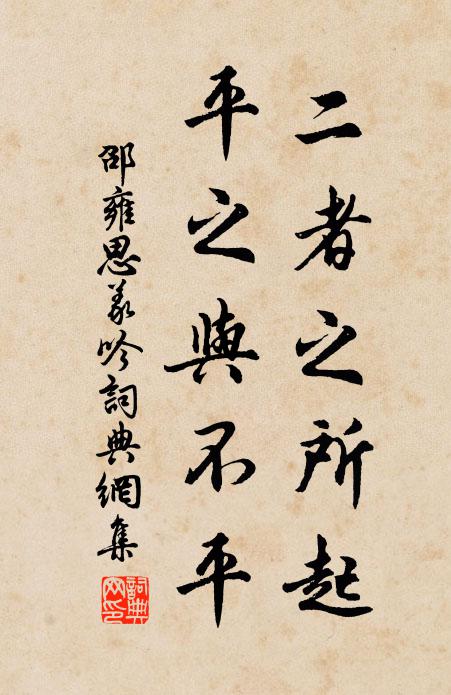 二者之所起
平之與不平
邵雍思義吟詞典網集
詞典網印